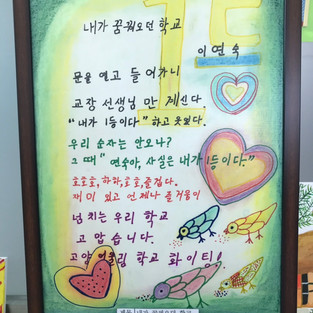 내가 꿈꿔오던 학교
이연숙
문을 열고 들어가니
교장 선생님 만 계신다.
"내가 1등이다" 하고 웃었다.
우리 순자는 안오나?
그 때 "연숙아, 사실은 내가 1등이다."
호호호, 하하, 호호, 즐겁다.
재미 있고 언제나 즐거움이
넘치는 우리 학교
고맙습니다.
고양 학교 화이팅!